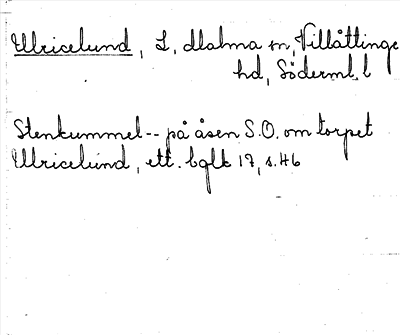 Ulricelund, L, dlalma sn, Villåttinge
hd, Söderml. l
Stenkummel-- på åsen S.O. om torpet
Ulricelund, ett. bglk 17, s.46